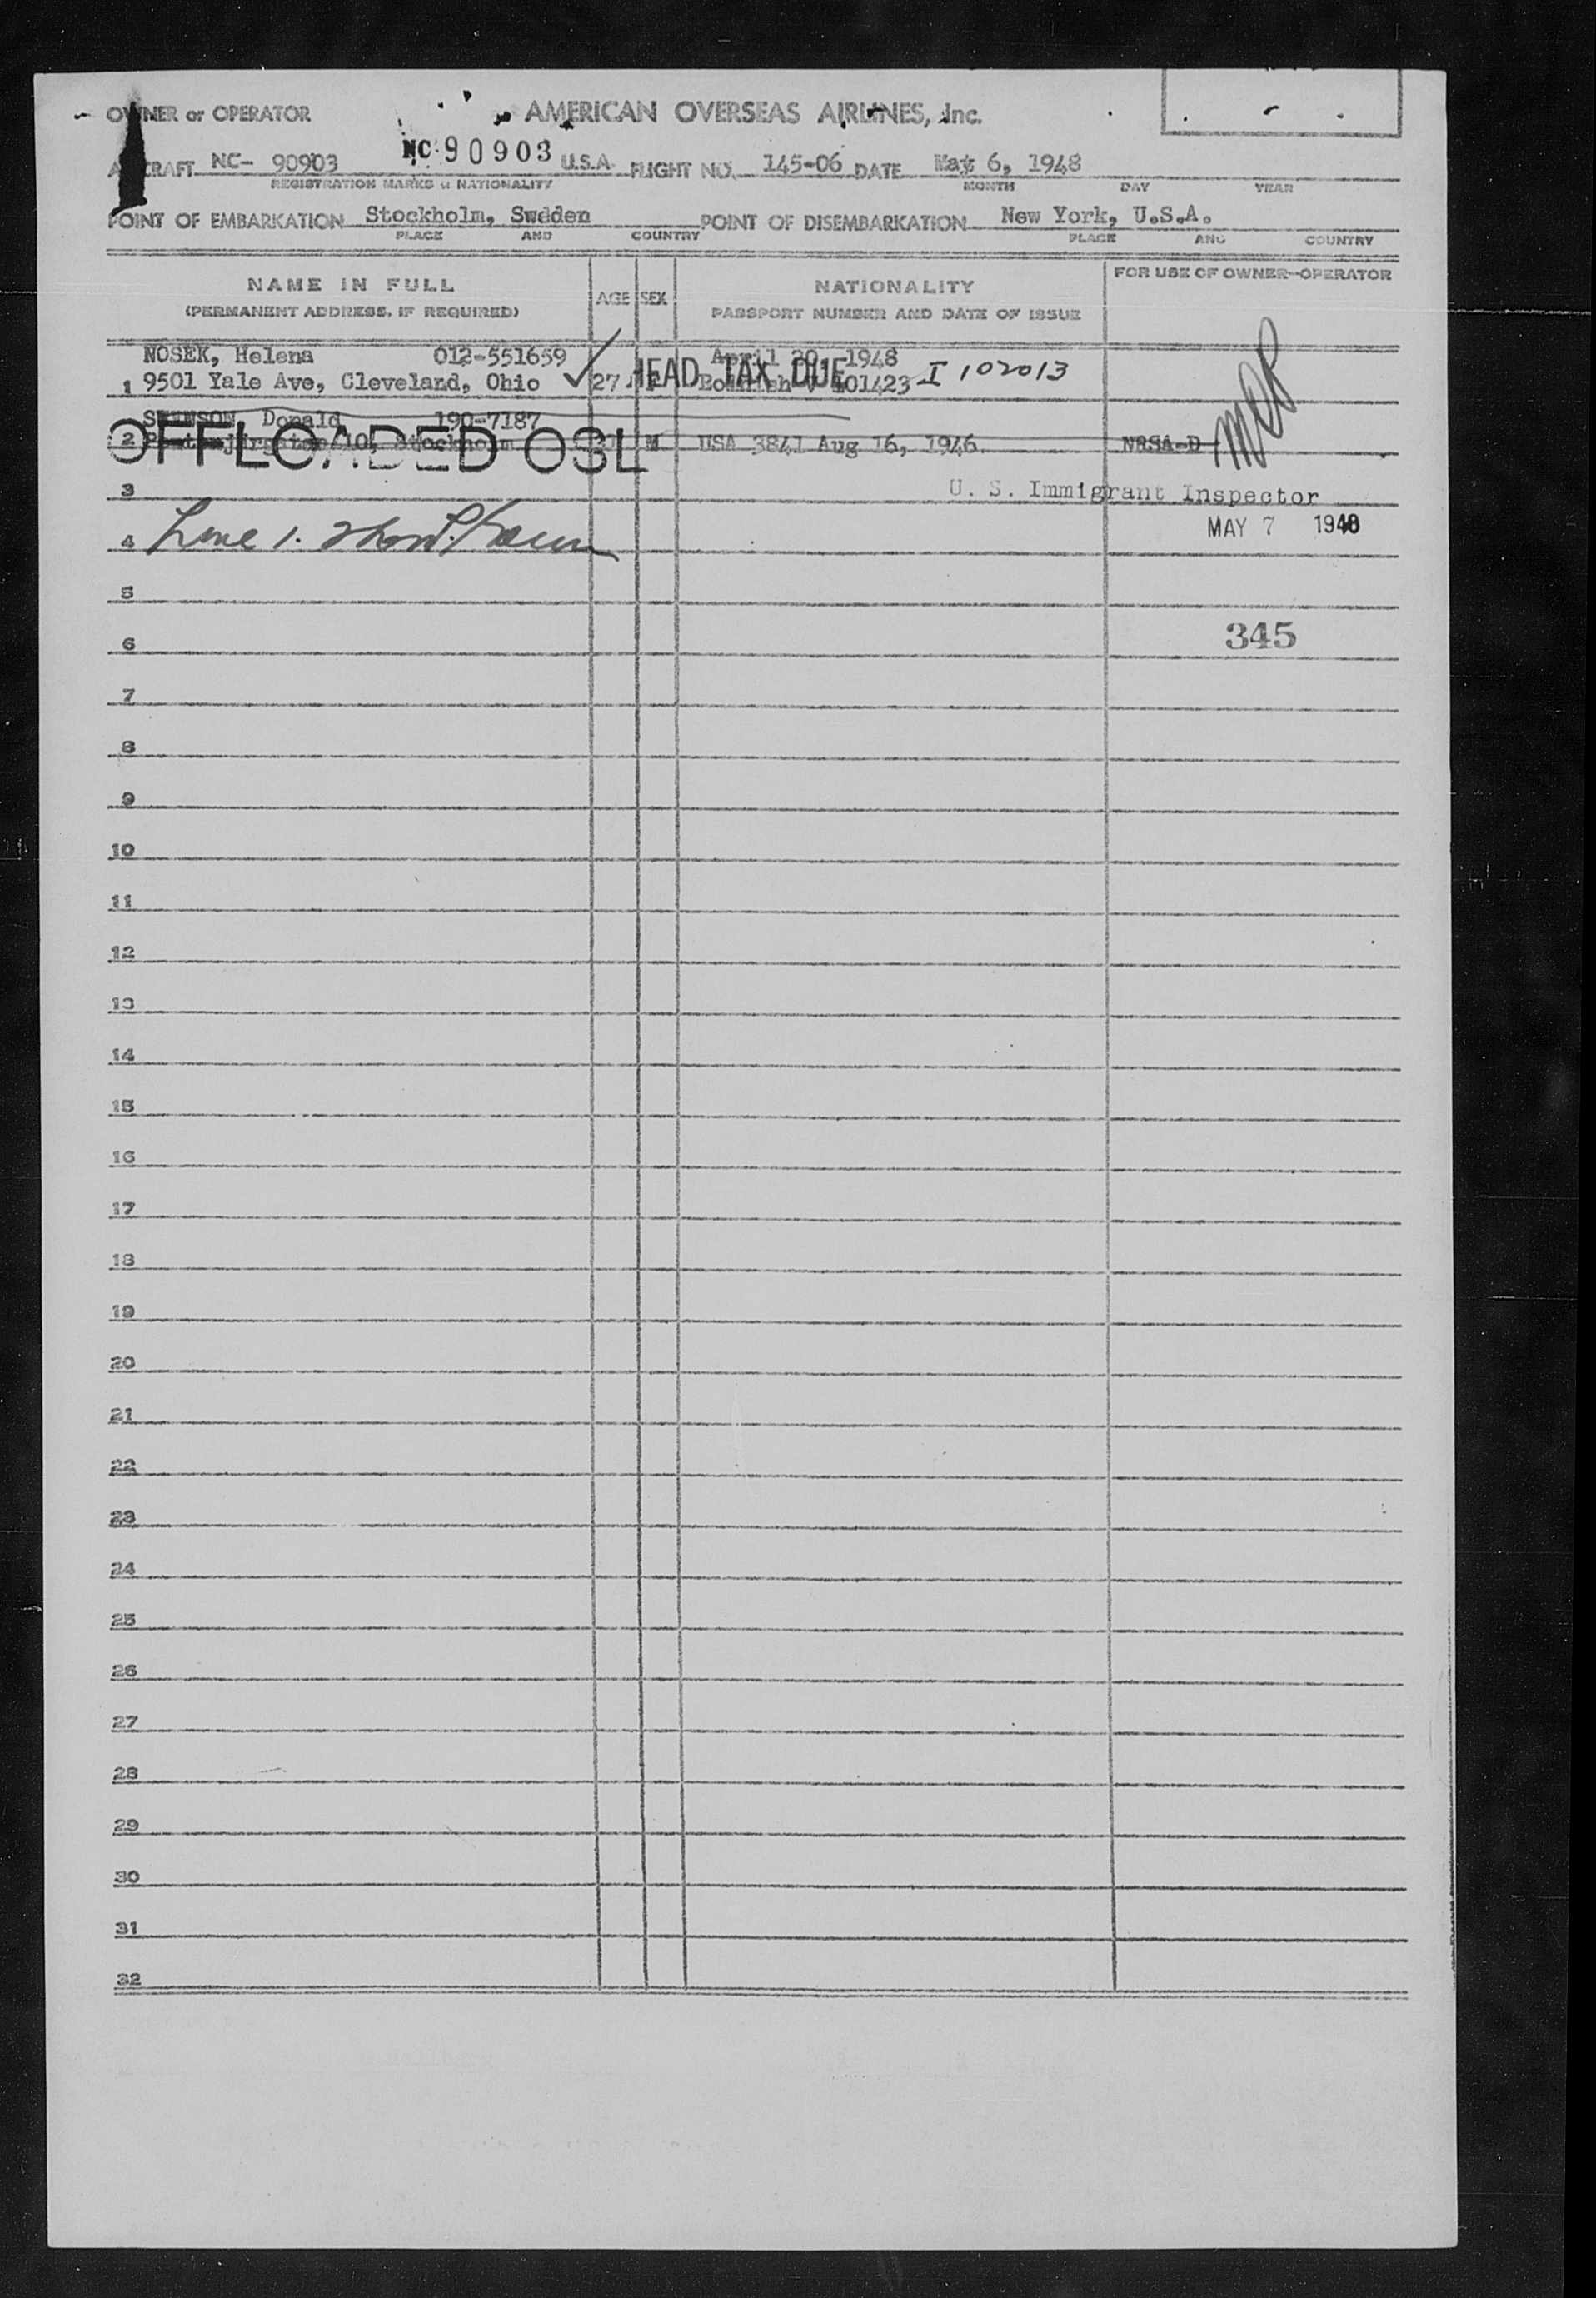 OWNER or OPERATOR AMERICAN OVERSEAS AIRLINES, Inc.
AIRCRAFT NC- 90903 NC 90903 U.S.A. FLIGHT NO. 145-06 DATE May 6, 1948
REGISTRATION MARKS & NATIONALITY MONTH DAY YEAR
POINT OF EMBARKATION Stockholm, Sweden POINT OF DISEMBARKATION New York, U.S.A.
PLACE AND COUNTRY PLACE AND COUNTRY
NAME IN FULL AGE SEX NATIONALITY FOR USE OF OWNER-OPERATOR
(PERMANENT ADDRESS, IF REQUIRED) PASSPORT NUMBER AND DATE OF ISSUE
NOSEK, Helena 012-551659 April 20, 1948
1 9501 Yale Ave, Cleveland, Ohio 27 HEAD TAX DUE 101423 I 102013
SWENSON, Donald 190-7187
2 10, Stockholm M USA 3841 Aug 16, 1946 NRSA-D
OFFLOADED OSL
3 U. S. Immigrant Inspector
4 Line 1. MAY 7 1948
5
6 345
7
8
9
10
11
12
13
14
15
16
17
18
19
20
21
22
23
24
25
26
27
28
29
30
31
32